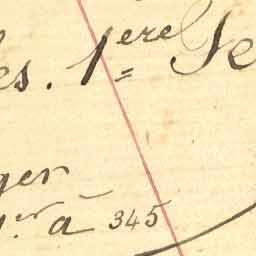 es. 1ere Se
ger
1.er à 345